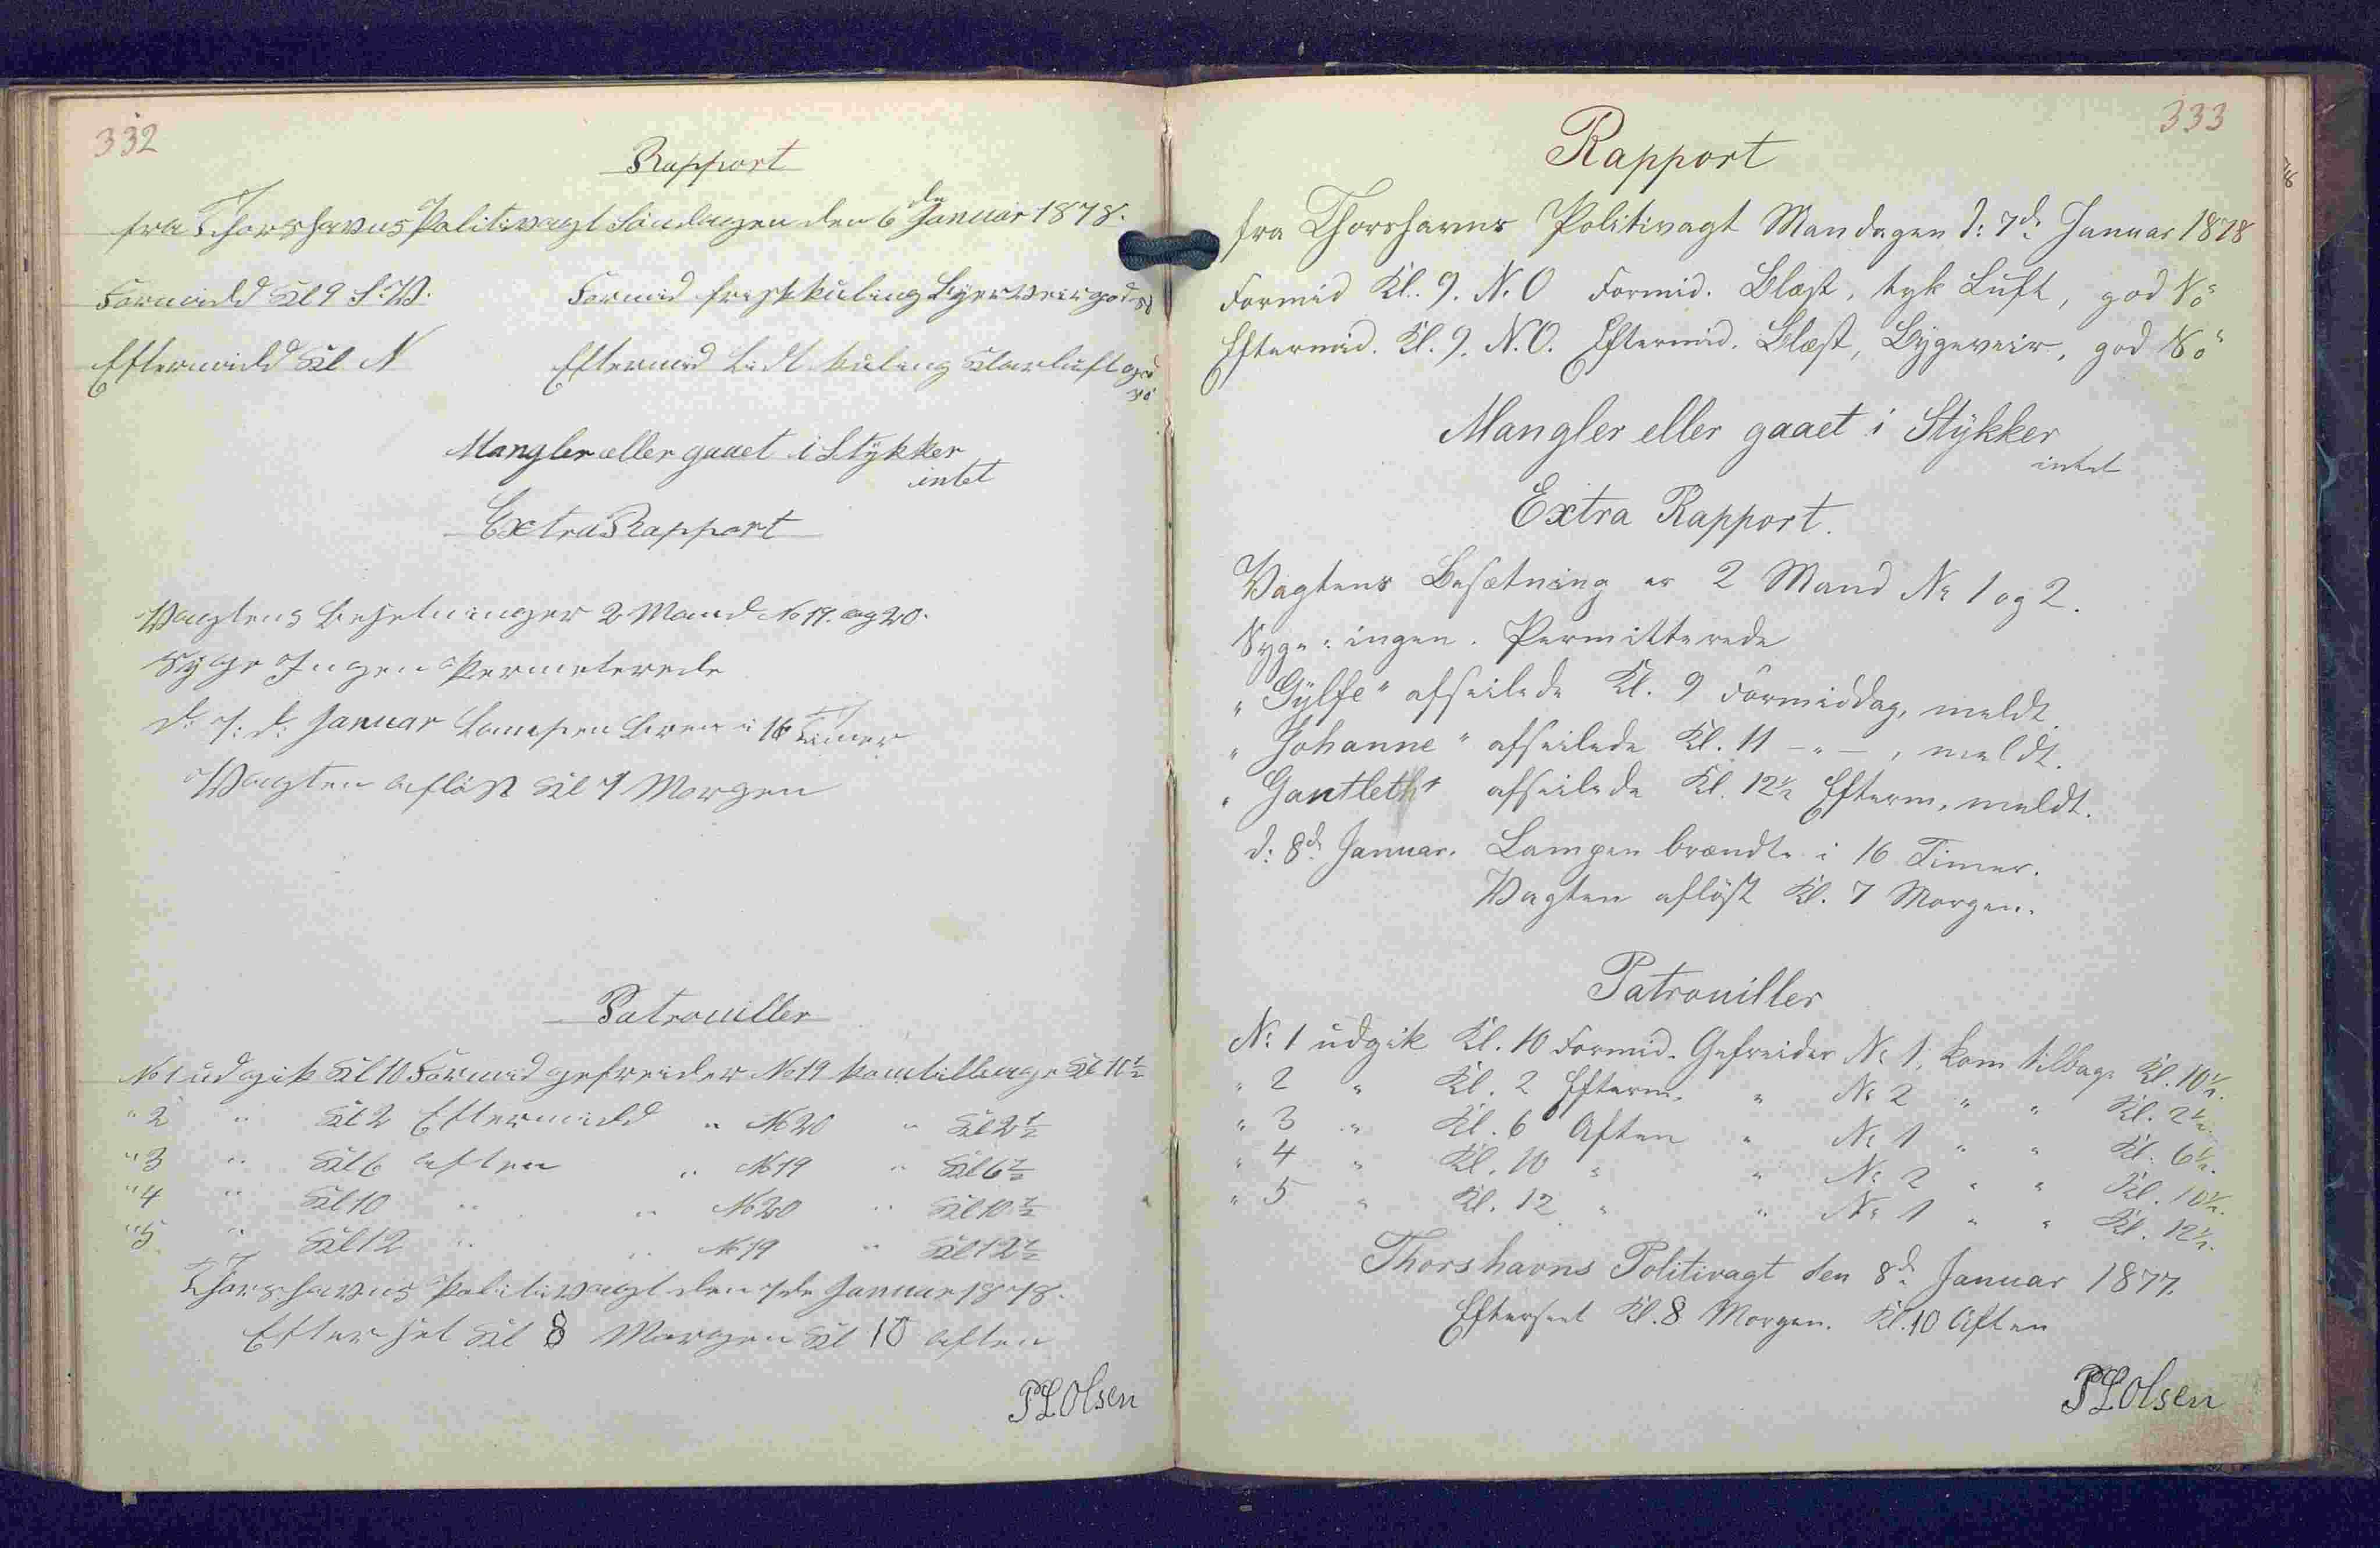 332
Rapport
fra Thorshavns Politivagt Söndagen den 6 de Januar 1878.
Formidd Kl 9 S.V. Formid frisk kuling Byer Veir god Sö
Eftermidd Kl N Eftermid Lidt kuling Klarluft god Sö
Mangler eller gaaet i Stÿkker
intet
Extra Rapport
Vagtens Besetninger 2 Mand No 19. og 20.
Syge Ingen Permeterede
d: 7: d: Januar Lampen Bren i 16 Timer
Vagten aflöst Kl 7 Morgen
Patrouiller
No 1 udgik Kl 10 Formid gefreider No 19 kom tilbage Kl 10½
" 2 " Kl 2 Eftermidd " No 20 " Kl 2½
" 3 " Kl 6 aften " No 19 " Kl 6½
" 4 " Kl 10 " " No 20 " Kl 10½
" 5 " Kl 12 " " No 19 " Kl 12½
Thorshavns Politivagt den 7de Januar 1878.
Efter set Kl 8 Morgen Kl 10 aften
PLOlsen
333
Rapport
fra Thorshavns Politivagt Mandagen d: 7d: Januar 1878
Formid Kl. 9. N.O Formid. Blæst, tyk Luft, god Sö
Eftermid. Kl. 9. N.O. Eftermid. Blæst, Bygeveir, god Sö
Mangler eller gaaet i Stÿkker
intet
Extra Rapport.
Vagtens Besætning er 2 Mand No 1 og 2.
Syge: ingen. Permitterede
"Gÿlfe" afseilede Kl. 9 Formiddag, meldt.
"Johanne" afseilede Kl. 11 – " – , meldt.
"Gantleth" afseilede Kl. 12½ Efterm, meldt.
d: 8d: Januar. Lampen brændte i 16 Timer.
Vagten aflöst Kl. 7 Morgen.
Patrouiller
No 1 udgik Kl. 10 Formid. Gefreider No 1, kom tilbage Kl. 10½.
" 2 " Kl. 2 Efterm. " No 2 " " Kl. 2½.
" 3 " Kl. 6 Aften " No 1 " " Kl. 6½.
" 4 " Kl. 10 " " No 2 " " Kl. 10½.
" 5 " Kl. 12 " " No 1 " " Kl. 12½.
Thorshavns Politivagt den 8d: Januar 1877.
Efterseet Kl. 8 Morgen. Kl. 10 Aften
PLOlsen